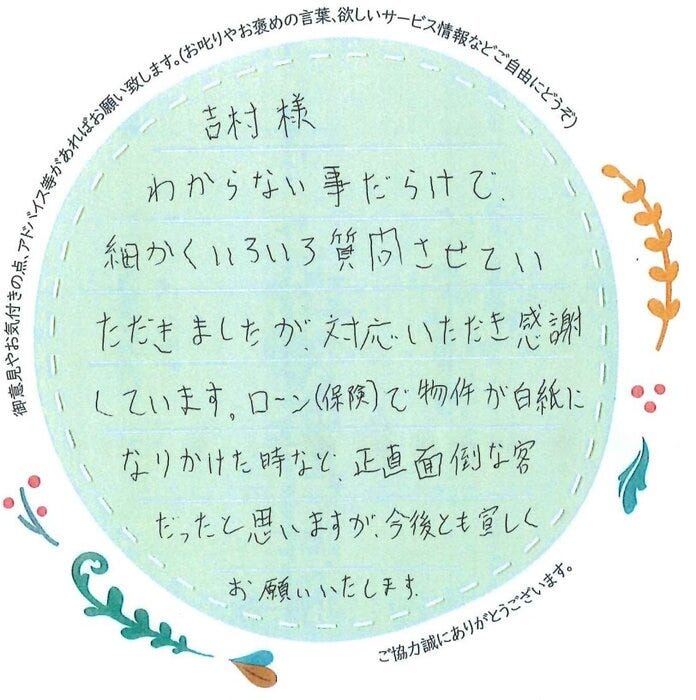 御意見やお気付きの点、アドバイス等があればお願い致します。(お叱りやお褒めの言葉、欲しいサービス情報などご自由にどうぞ)
吉村様
わからない事だらけで、
細かくいろいろ質問させてい
ただきましたが、対応いただき感謝
しています。ローン(保険)で物件が白紙に
なりかけた時など、正直面倒な客
だったと思いますが、今後とも宜しく
お願いいたします。
ご協力誠にありがとうございます。